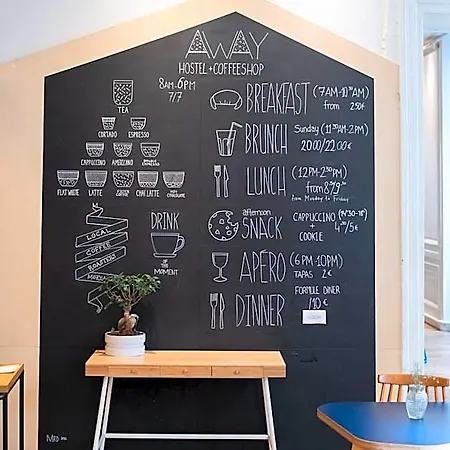 AWAY
HOSTEL + COFFEESHOP
8AM-6PM
7/7
TEA
CORTADO ESPRESSO
CAPPUCCINO AMERICANO
FLAT WHITE LATTE CHAI LATTE HOT CHOCOLATE
LOCAL
COFFEE
ROASTERS
DRINK
OF THE
MOMENT
BREAKFAST (7AM-10AM)
from 250€
BRUNCH Sunday (11:30AM-2PM)
20.00/22.00 €
LUNCH (12PM-2:30PM)
from
from Monday to Friday
afternoon
SNACK CAPPUCCINO
+
COOKIE
APÉRO (6PM-10PM)
TAPAS 2€
DINNER FORMULE DINER